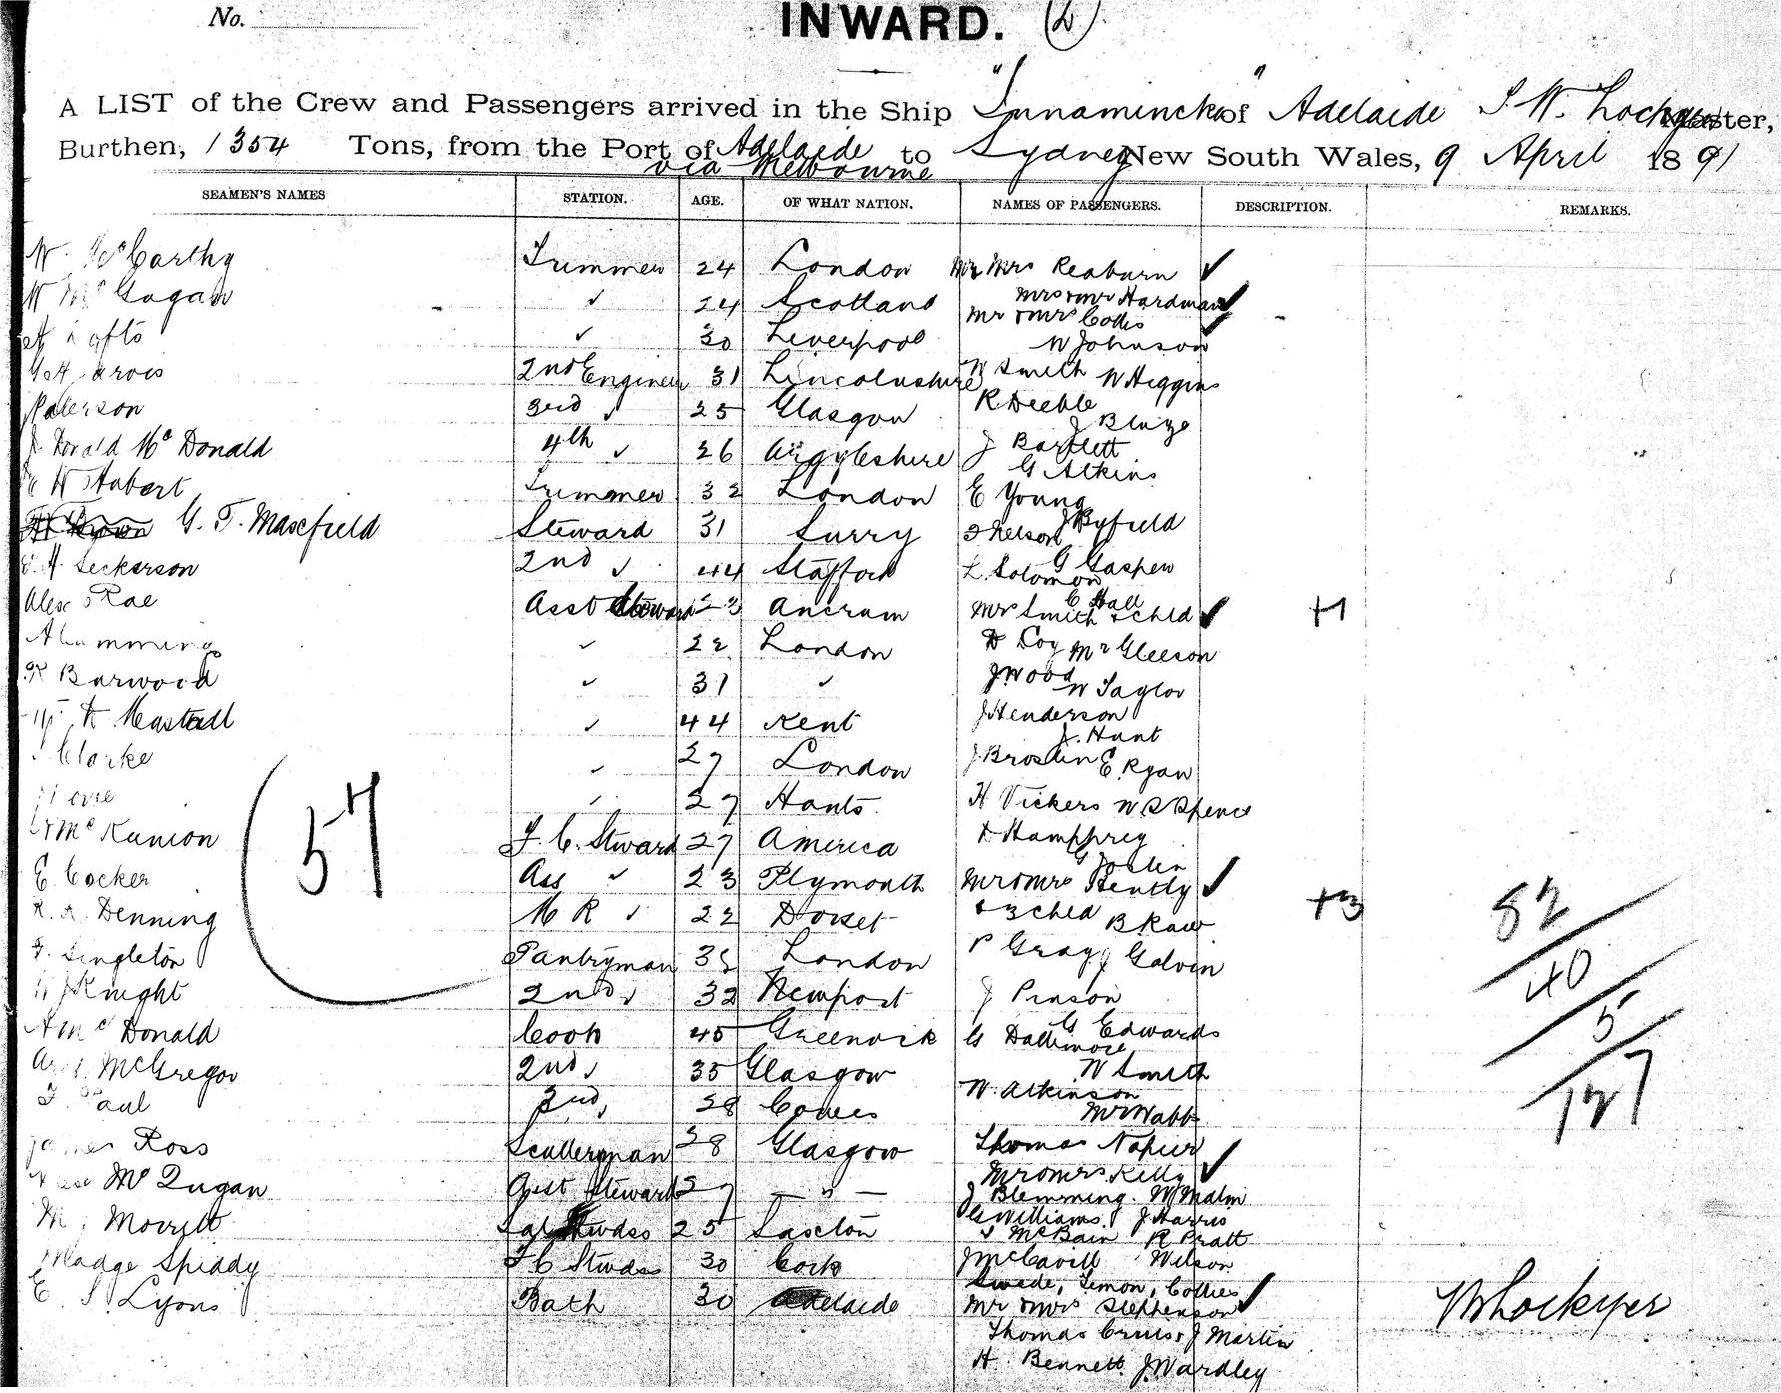 No.
INWARD. (2)
A LIST of the Crew and Passengers arrived in the Ship "Innamincka" of Adelaide S. W. Lockyer Master,
Burthen, 1354 Tons, from the Port of Adelaide via Melbourne to Sydney New South Wales, 9 April 1891
SEAMEN'S NAMES STATION. AGE. OF WHAT NATION. NAMES OF PASSENGERS. DESCRIPTION. REMARKS.
W. McCarthy Trimmer 24 London Mr Mrs Reaburn ✓
W McGagan ✓ 24 Scotland Mrs & Mr Hardman ✓
✓ 30 Liverpool Mr & Mrs Collis ✓
W Johnson
2nd Engineer 31 Lincolnshire W Smith W Higgins
Paterson 3rd ✓ 25 Glasgow R Deeble
J Blaze
Donald McDonald 4th ✓ 26 Argyleshire J Bartlett
G Atkins
W Hubert Trimmer 32 London E Young
G. T. Masefield Steward 31 Surry J Nelson J Byfield
Seckerson 2nd ✓ 44 Stafford L. Solomon G Gaspew
C Hall
Alex Rae Asst Steward 23 Ancrum Mrs Smith & chld ✓ +1
A Cummings ✓ 22 London D Coy Mr Gleeson
R Barwood ✓ 31 ✓ J Wood W Taylor
✓ 44 Kent J Henderson
J. Hunt
Clarke ✓ 27 London J Broslin E. Ryan
✓ 27 Hants. H Vickers W S Spence
57
F. C. Steward 27 America Hamphrey
G Joslin
E. Cocker Ass ✓ 23 Plymouth Mr & Mrs Hently ✓
Denning M R ✓ 22 Dorset & 3 chld B Raw +3
Singleton Pantryman London P Gray J Galvin
Knight 2nd ✓ 32 Newport J Pinson
A McDonald Cook 45 Greenock G Dallimore G Edwards
McGregor 2nd ✓ 35 Glasgow W Smith
F. Paul 3rd ✓ 28 Cowes W. Atkinson
Mr Wabb
James Ross Sculleryman 28 Glasgow Thomas Napier
Mr & Mrs Kelly ✓
McDugan Asst Steward 27 — " — J Blemming. W Malin
G Williams J Harris
M. Morrell Stwdss 25 J McBain R Pratt
Madge Spiddy F C Stwdss 30 Cork J McCavill Wilson
Swade, Lemon, Collies
E. S. Lyons Bath 30 Adelaide Mr & Mrs Stephenson ✓
Thomas J Martin
H. Bennett J. Wardley
82
40
5
127
W Lockyer